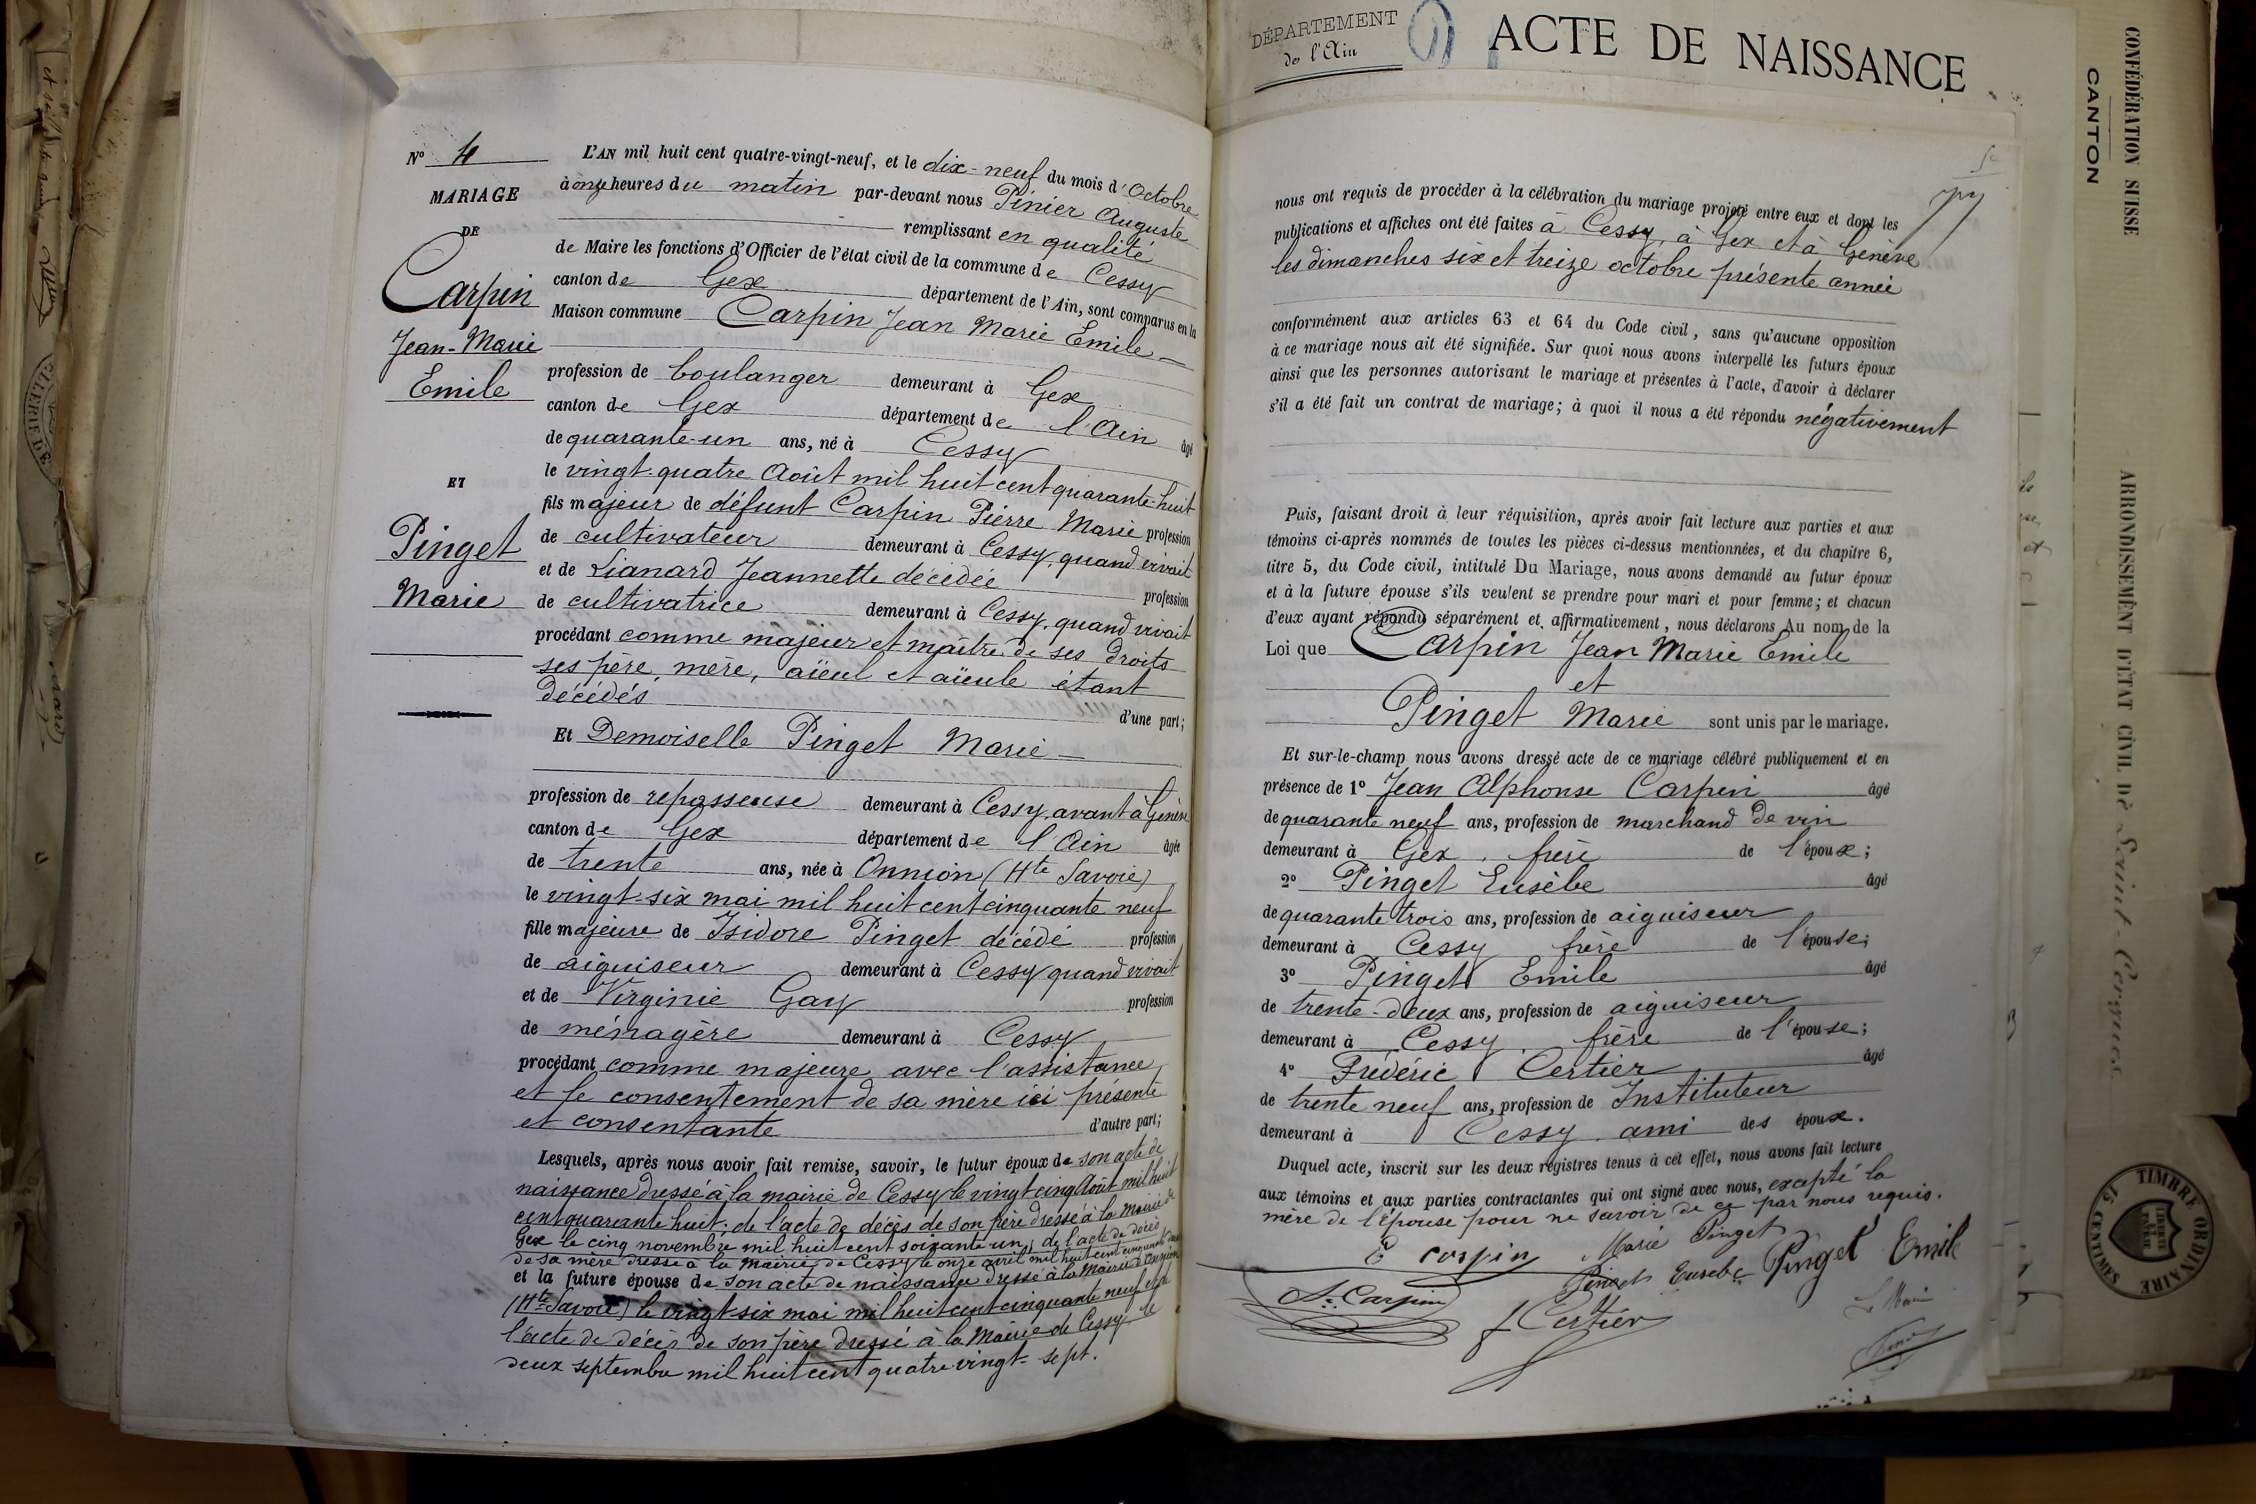 N° 4
MARIAGE
DE
Carpin
Jean-Marie
Emile
ET
Pinget
Marie
L'AN mil huit cent quatre-vingt-neuf, et le dix-neuf du mois d'Octobre
à onze heures du matin par-devant nous Pinier Auguste
remplissant en qualité
de Maire les fonctions d'Officier de l'état civil de la commune de Cessy
canton de Gex département de l'Ain, sont comparus en la
Maison commune Carpin Jean Marie Emile
profession de boulanger demeurant à Gex
canton de Gex département de l'Ain âgé
de quarante-un ans, né à Cessy
le vingt-quatre Août mil huit cent quarante-huit
fils majeur de défunt Carpin Pierre Marie profession
de cultivateur demeurant à Cessy, quand vivait
et de Lianard Jeannette décédée profession
de cultivatrice demeurant à Cessy, quand vivait
procédant comme majeur et maître de ses droits
ses père, mère, aïeul et aïeule étant
décédés d'une part;
Et Demoiselle Pinget Marie
profession de repasseuse demeurant à Cessy, avant à Genève
canton de Gex département de l'Ain âgée
de trente ans, née à Onnion (Hte Savoie)
le vingt-six mai mil huit cent cinquante neuf
fille majeure de Isidore Pinget décédé profession
de aiguiseur demeurant à Cessy quand vivait
et de Virginie Gay profession
de ménagère demeurant à Cessy
procédant comme majeure avec l'assistance
et le consentement de sa mère ici présente
et consentante d'autre part;
Lesquels, après nous avoir fait remise, savoir, le futur époux de son acte de
naissance dressé à la mairie de Cessy le vingt cinq Août mil huit
cent quarante huit; de l'acte de décès de son père dressé à la Mairie de
Gex le cinq novembre mil huit cent soixante-un, de l'acte de décès
de sa mère dressé à la Mairie de Cessy le onze avril mil huit cent cinquante
et la future épouse de son acte de naissance dressé à la Mairie d'Onnion
(Hte Savoie) le vingt-six mai mil huit cent cinquante neuf et de
l'acte de décès de son père dressé à la Mairie de Cessy le
deux septembre mil huit cent quatre vingt-sept.
DÉPARTEMENT
de l'Ain
ACTE DE NAISSANCE
nous ont requis de procéder à la célébration du mariage projeté entre eux et dont les
publications et affiches ont été faites à Cessy, à Gex et à Genève
les dimanches six et treize octobre présente année
conformément aux articles 63 et 64 du Code civil, sans qu'aucune opposition
à ce mariage nous ait été signifiée. Sur quoi nous avons interpellé les futurs époux
ainsi que les personnes autorisant le mariage et présentes à l'acte, d'avoir à déclarer
s'il a été fait un contrat de mariage; à quoi il nous a été répondu négativement
Puis, faisant droit à leur réquisition, après avoir fait lecture aux parties et aux
témoins ci-après nommés de toutes les pièces ci-dessus mentionnées, et du chapitre 6,
titre 5, du Code civil, intitulé Du Mariage, nous avons demandé au futur époux
et à la future épouse s'ils veulent se prendre pour mari et pour femme; et chacun
d'eux ayant répondu séparément et affirmativement, nous déclarons Au nom de la
Loi que Carpin Jean Marie Emile
et
Pinget Marie sont unis par le mariage.
Et sur-le-champ nous avons dressé acte de ce mariage célébré publiquement et en
présence de 1° Jean Alphonse Carpin âgé
de quarante neuf ans, profession de marchand de vin
demeurant à Gex, frère de l'époux;
2° Pinget Eusèbe âgé
de quarante trois ans, profession de aiguiseur
demeurant à Cessy frère de l'épouse;
3° Pinget Emile âgé
de trente-deux ans, profession de aiguiseur
demeurant à Cessy, frère de l'épouse;
4° Frédéric Certier âgé
de trente neuf ans, profession de Instituteur
demeurant à Cessy, ami des époux.
Duquel acte, inscrit sur les deux registres tenus à cet effet, nous avons fait lecture
aux témoins et aux parties contractantes qui ont signé avec nous, excepté la
mère de l'épouse pour ne savoir de ce par nous requis.
E corpin Marie Pinget
Pinget Eusebe Pinget Emile
A. Carpin
f Certier
Le Maire
CONFÉDÉRATION SUISSE
CANTON
ARRONDISSEMENT D'ÉTAT CIVIL DE Saint-Cergue
TIMBRE ORDINAIRE
15 CENTIMES